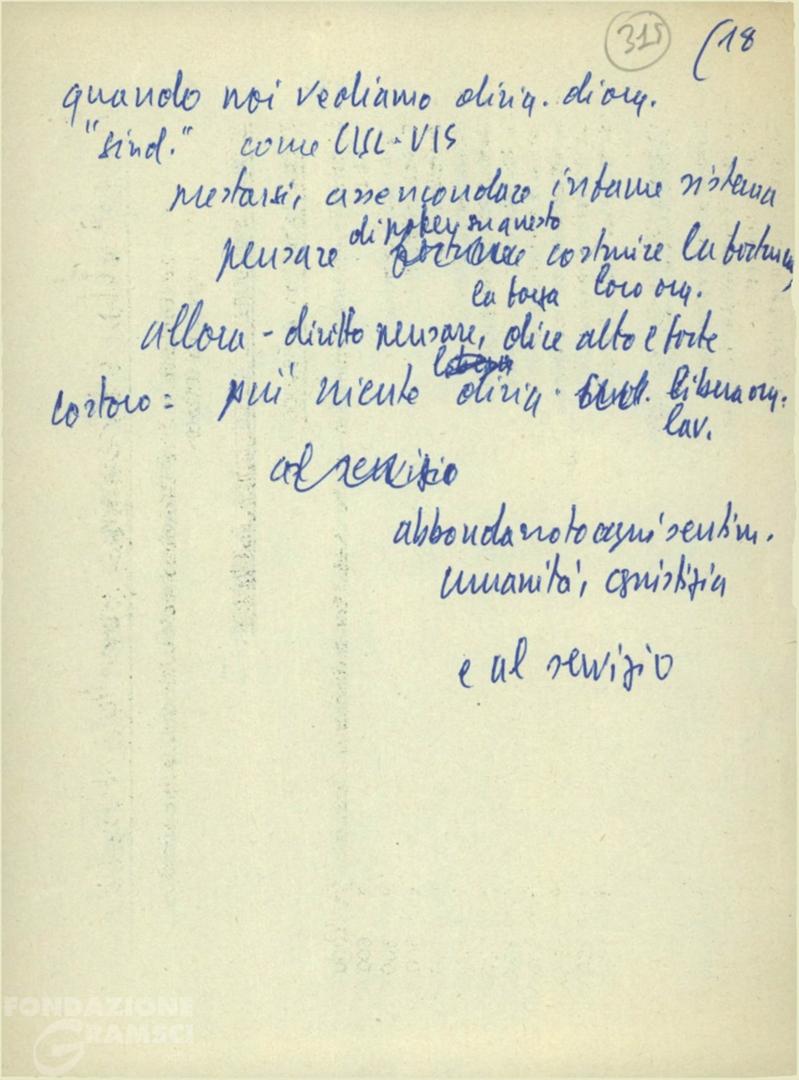 315 (18
quando noi vediamo dirig. di org.
"sind." come CISL-UIS
prestarsi, assecondare infame sistema
pensare di poter su questo costruire la fortuna,
la forza loro org.
allora - diritto pensare, dire alto e forte
costoro = più niente dirig. libera org.
lav.
al servizio
abbondanoto ogni sentim.
umanità, giustizia
e al servizio
FONDAZIONE
GRAMSCI